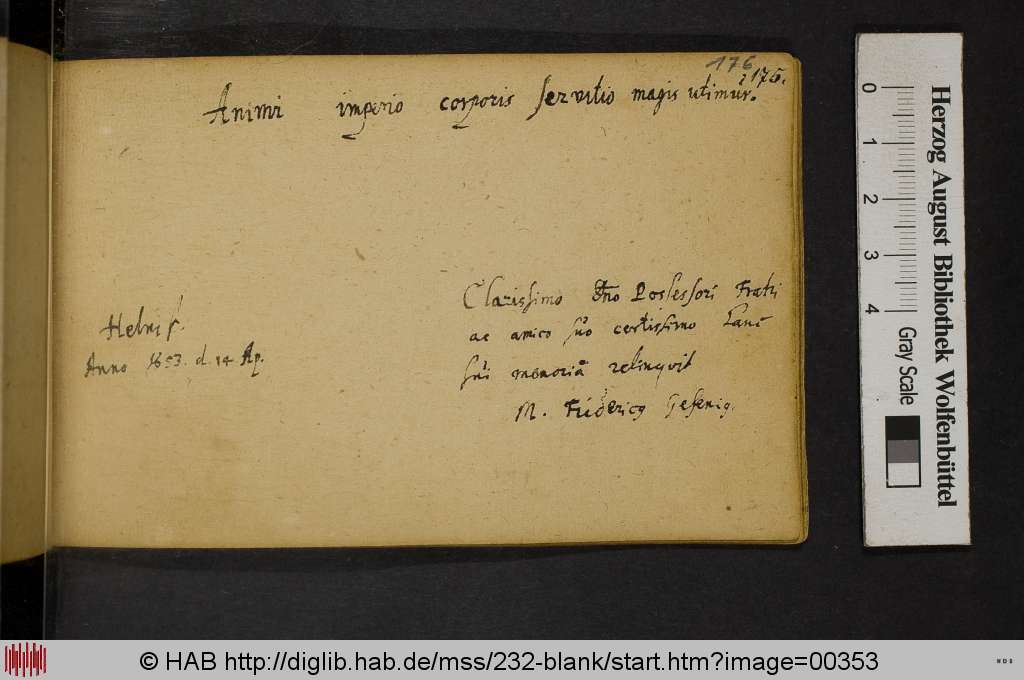 176
175.
Animi imperio corporis servitio magis utimur.
Clarissimo Dno Possessori Fratri
ac amico suo certissimo hanc
sui memoriā relinquit
M. Fridericq Gesenig.
Helmst.
Anno 1653. d. 14 Ap.
0 1 2 3 4
Gray Scale
Herzog August Bibliothek Wolfenbüttel
© HAB http://diglib.hab.de/mss/232-blank/start.htm?image=00353